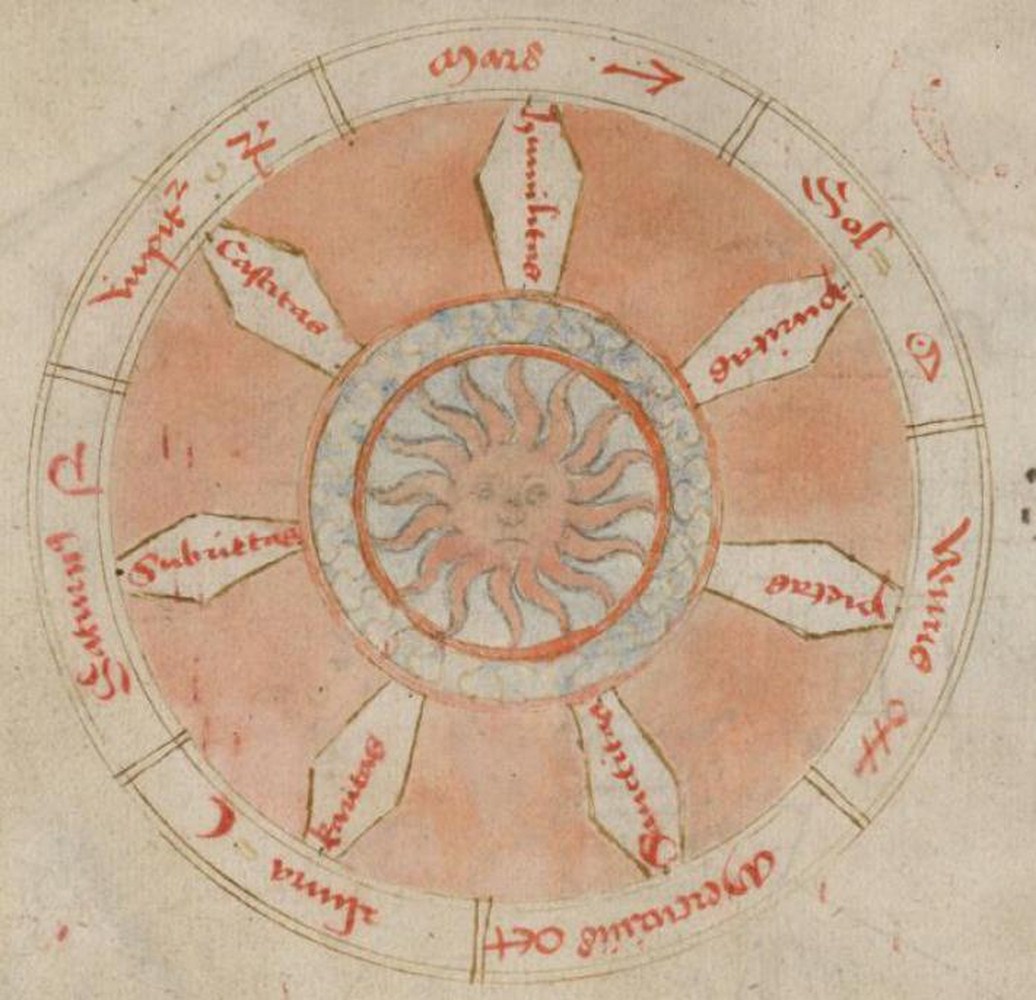 Mars
Sol ☉
Venus ♀
Mercurius ☿
Luna ☾
Saturnus ♄
Iupiter ♃
humilitas
puritas
pietas
Sanctitas
karitas
Castitas